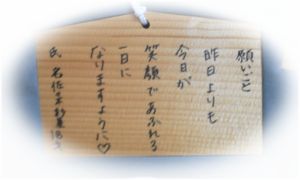 願いごと
昨日よりも
今日が
笑顔であふれる
一日に
なりますように♡
氏名佐